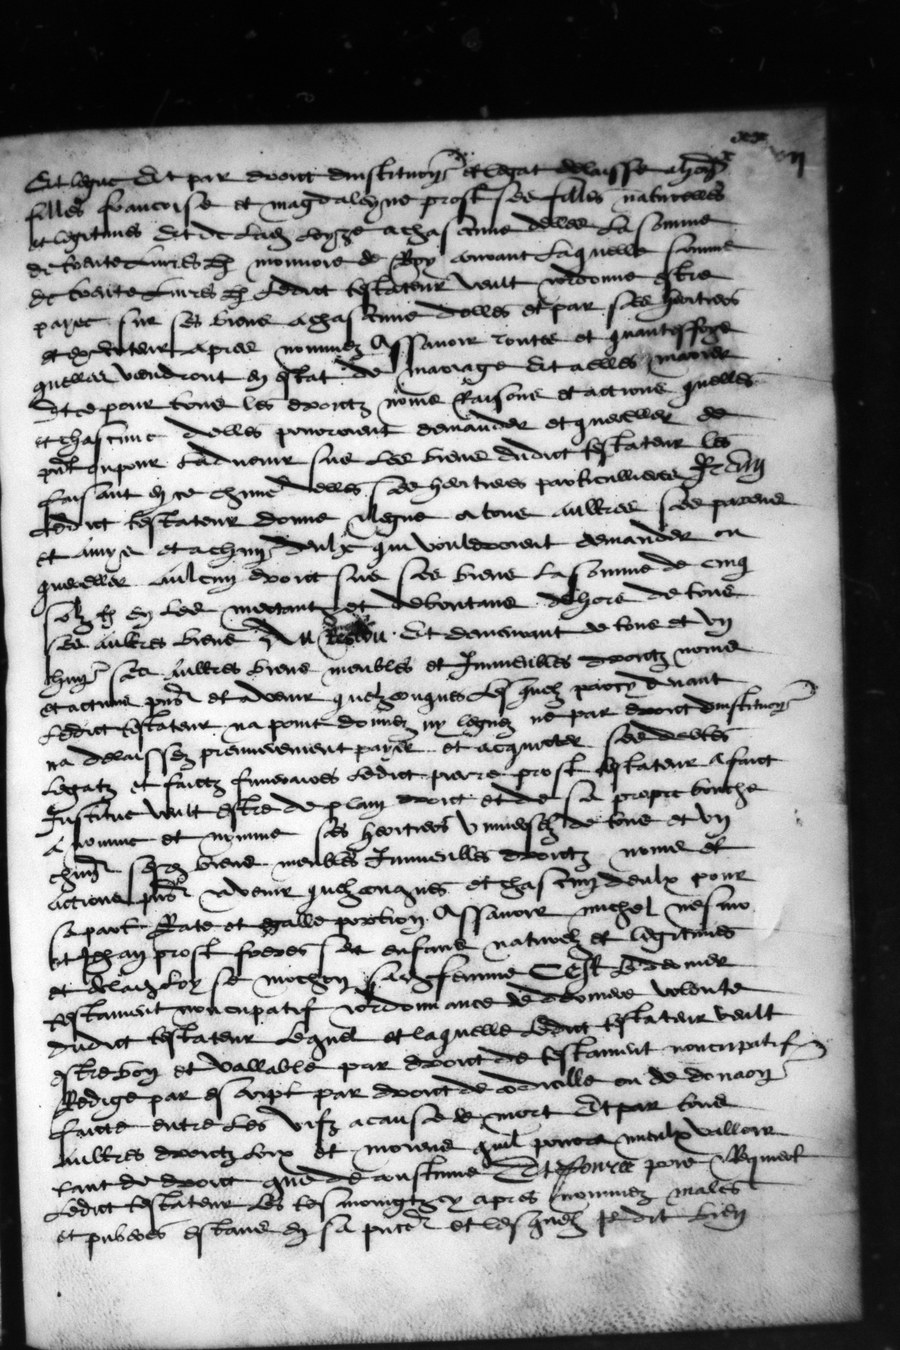 Et legue Et par droict dinstitution et legat delaisse a
filles francoise et magdaleyne prost ses filles naturelles
et legitimes Et de a chascune delles La somme
de trente Livres monnoie de Roy avant Laquelle somme
de trente Livres Ledict testateur veult ordonne estre
payee sur ses biens a chascune delles et par ses heritiers
et executeur apres nommez Assavoir toutes et quanteffoys
quelles viendront en estat de mariage Et a elles marier
Et ce pour tous les droictz noms Raisons et actions quelles
et chascune delles pourroient demander et quereller de
pnt ou pour Ladvenir sur Les biens dudict testateur les
faisant en ce delles ses heritieres particullieres Item
Ledict testateur donne legue a tous aultres ses parens
et amys et a chun deulx qui vouldroient demander ou
quereller aulcun droict sur ses biens La somme de cinq
solz en Les mectant et deboutans dehors de tous
ses aultres biens Et demeurant de tous et ung
chung ses aultres biens meubles et Immeubles droictz noms
et actions pns et advenir quelzconques Desquelz par cy devant
Ledict testateur na point donnez ny leguez ne par droict dinstitution
na delaissez premierement payer et acquicter ses debtes
Legatz et faictz funeraires Ledict pierre prost testateur a faict
Institue veult estre de plain droict et de sa propre bouche
a nomme et nomme ses heritiers universelz de tous et ung
chung ses biens meubles Immeubles droictz noms et
actions pns advenir quelzconques et chascun deulx pour
sa part Rate et egalle portion Assavoir michel
et Jehan prost freres ses enfans naturelz et legitimes
et de sa femme Cest Le dernier
testament noncupatif ordonnance de derniere volente
dudict testateur Lequel et laquelle Ledict testateur veult
estre bon et vallable par droict de testament noncupatif
Redige par escript par droict de codicille ou de donaon
faicte entre Les vifz a cause de mort Et par tous
aultres droictz Loix et moiens quil pourra mieulx valloir
tant de droict que de coustume Et
Ledict testateur Les tesmoingtz cy apres nommez males
et puberes estans en sa pnce et lesquelz Il dit bien